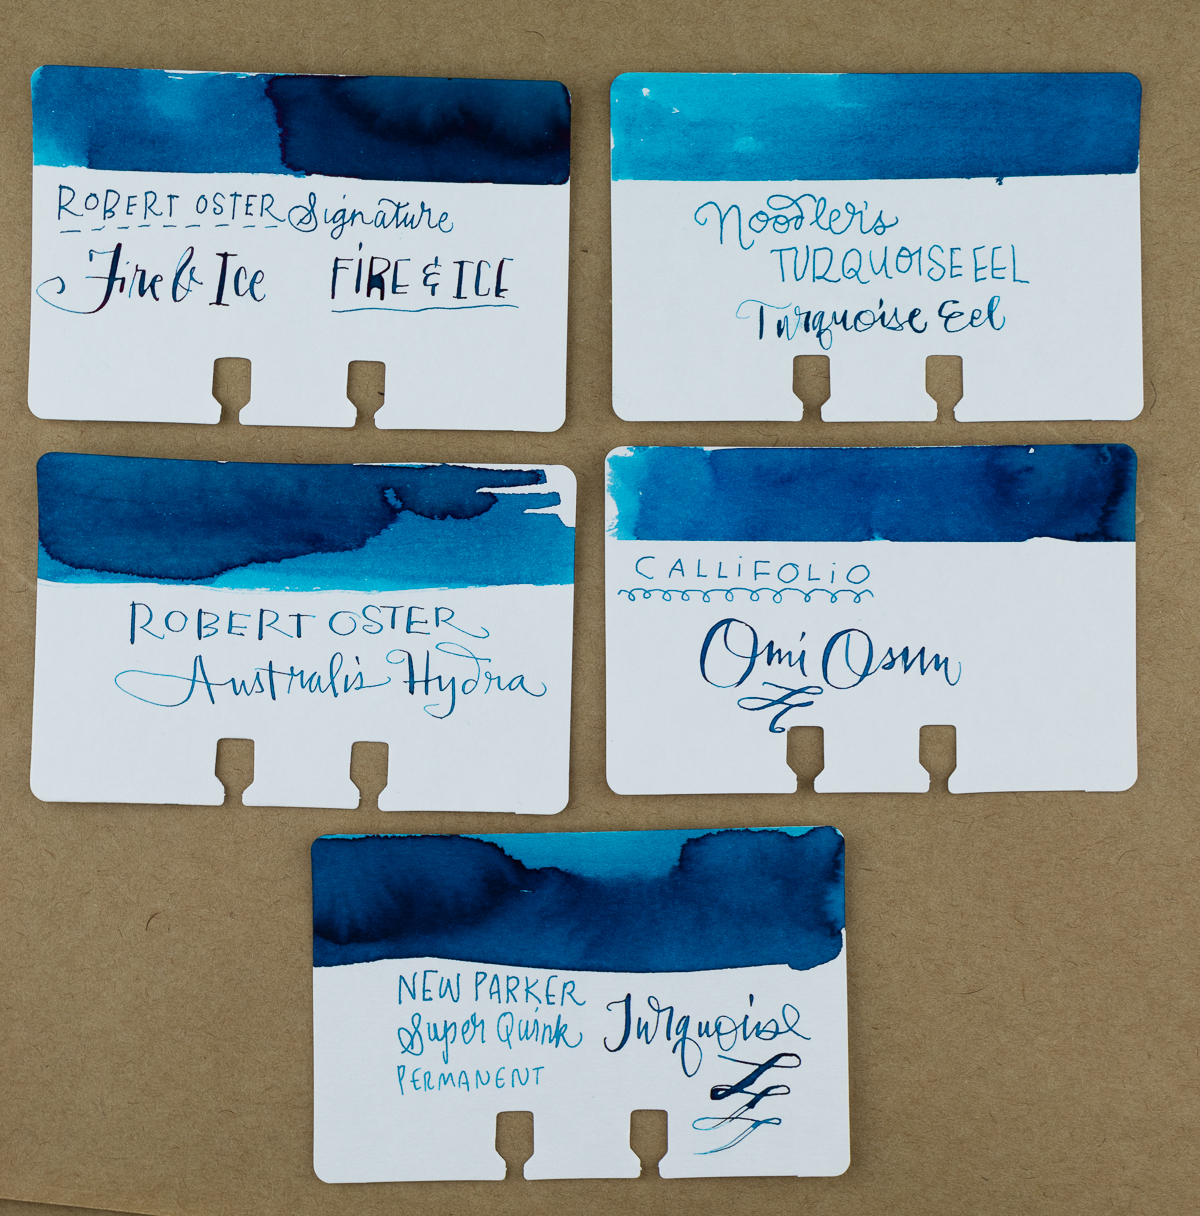 ROBERT OSTER Signature
Fire & Ice FIRE & ICE
Noodler's
TURQUOISE EEL
Turquoise Eel
ROBERT OSTER
Australis Hydra
CALLIFOLIO
Omi Osun
NEW PARKER
Super Quink
PERMANENT
Turquoise